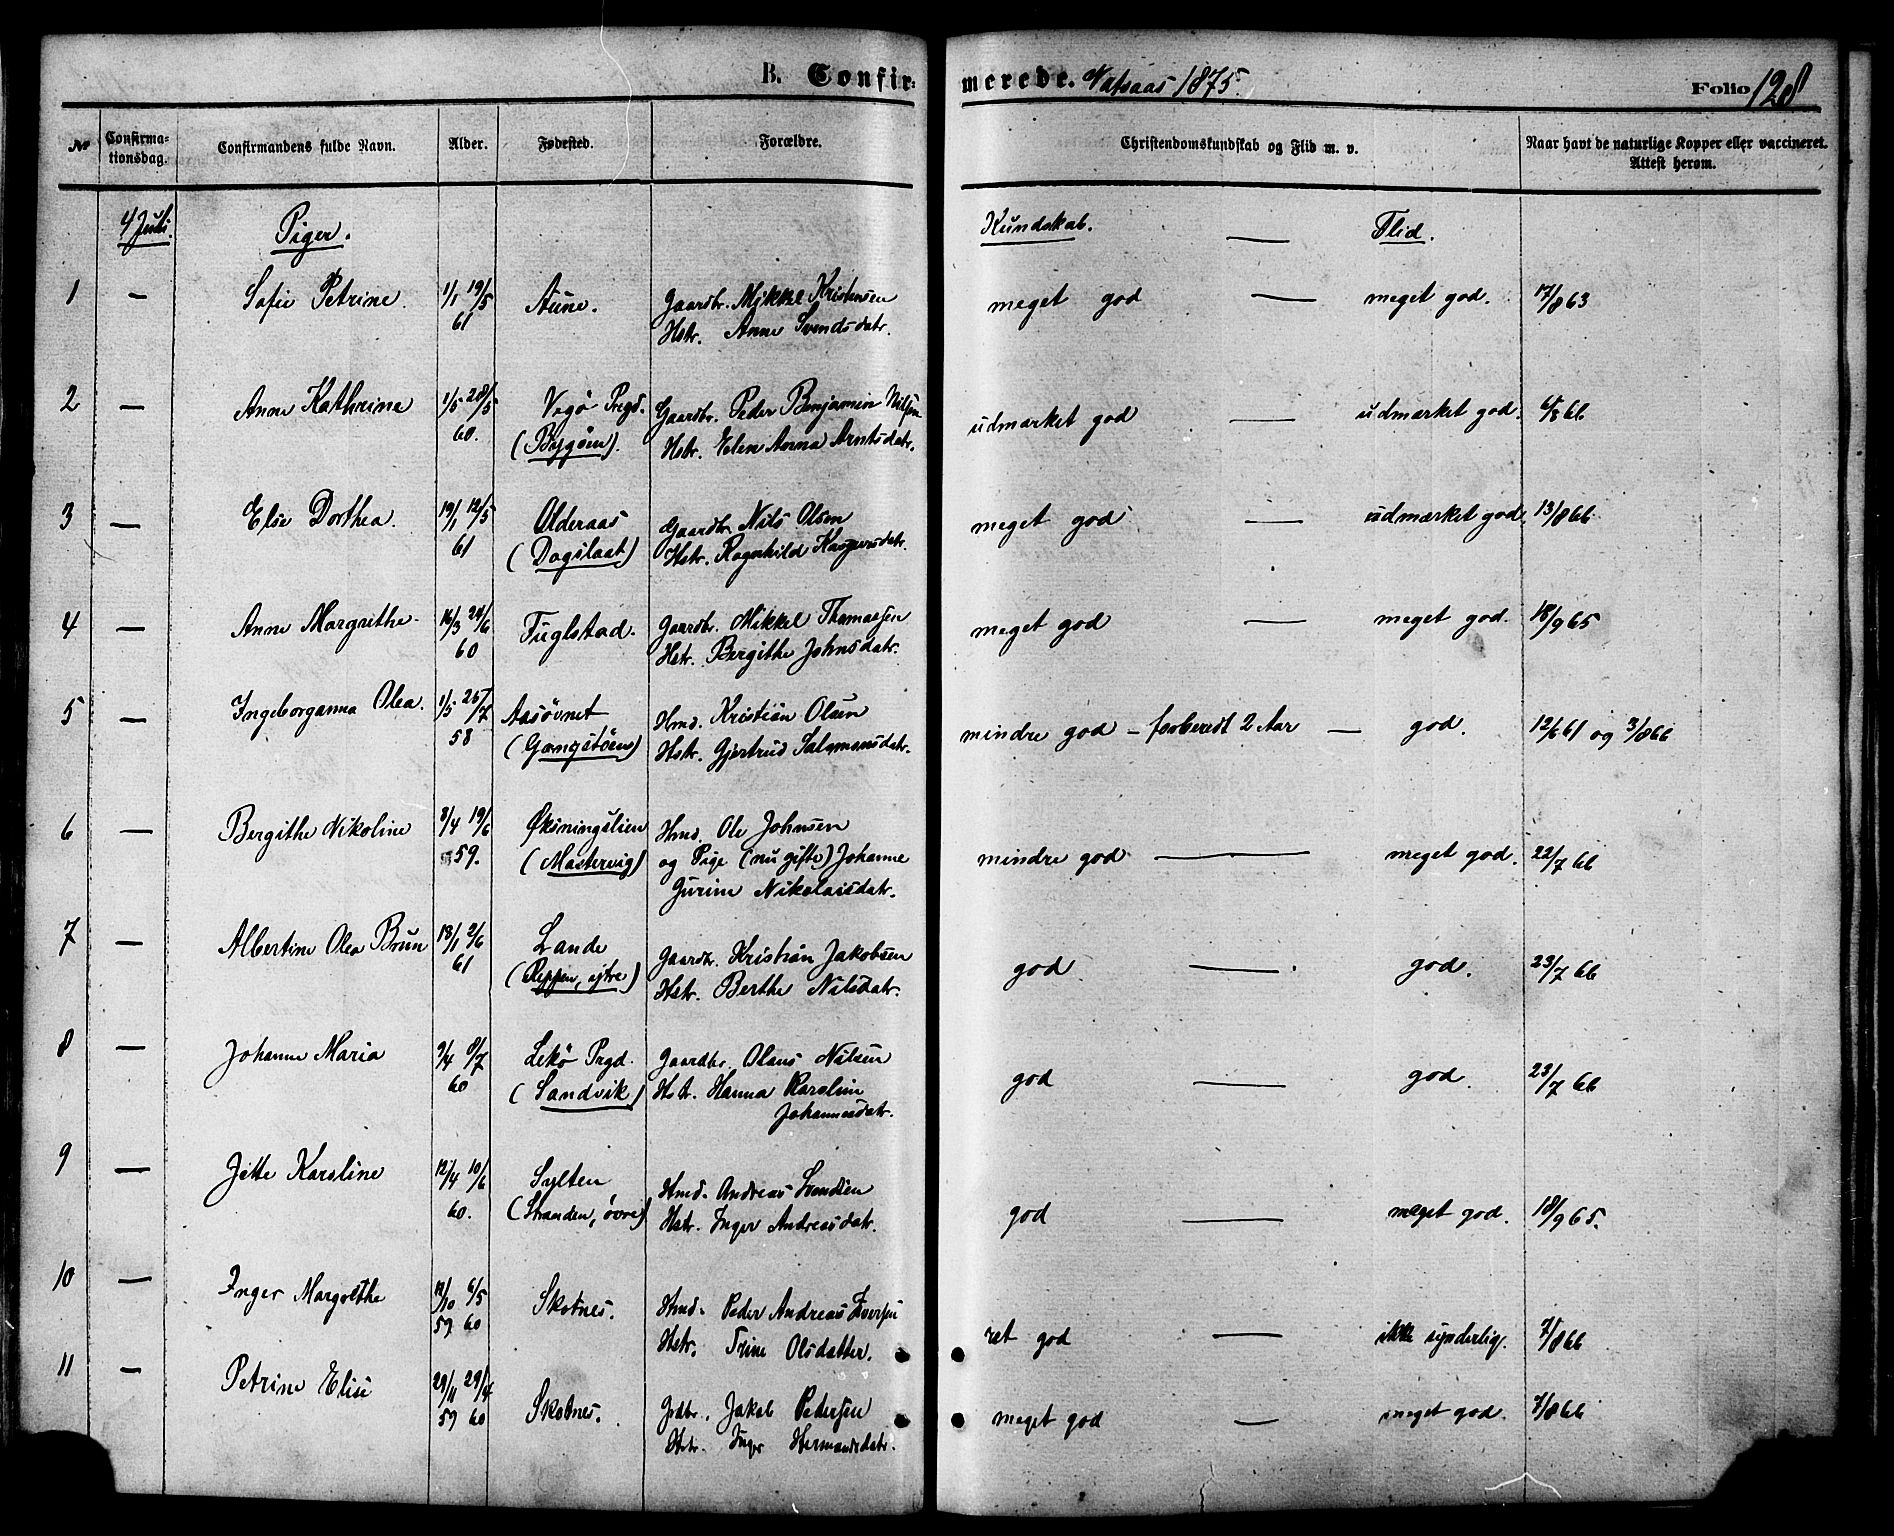 B. Confir-
merede. Vatsaas 1875.
Folio 128
No
Confirma-
tionsdag.
Confirmandens fulde Navn.
Alder.
Fødested.
Forældre.
Christendomskundskab og Flid m. v.
Naar havt de naturlige Kopper eller vaccineret.
Attest herom.
4 Juli.
Piger.
Kundskab. — Flid.
1 — Sofie Petrine. 1/1 19/5 Aune. Gaardbr. Mikkel Kristensen meget god — meget god. 17/8 63
61 Hstr. Anne Svendsdatr.
2 — Anne Kathrine 1/5 28/5 Vegø Prgd. Gaardbr. Peder Benjamin Nilsen udmærket god — udmærket god. 6/8 66
60. (Bøsgøen). Hstr. Elen Anna Arntsdatr.
3 — Else Dorthea. 19/1 12/5 Olderaas Gaardbr. Nils Olsen meget god — udmærket god. 13/8 66
61 (Dagslaat) Hstr. Ragnhild Kaspersdatr.
4 — Anne Margrethe. 16/3 24/6 Fuglstad. Gaardbr. Mikkel Thomassen meget god — meget god. 18/9 65
60 Hstr. Bergithe Johnsdatr.
5 — Ingeborganna Olea. 1/5 25/7 Aasøvnet Hmd. Kristian Olsen mindre god — forberedt 2 Aar — god. 12/6 61 og 3/8 66
58 (Gangstøen) Hstr. Gjertrud Salamonsdatr.
6 — Bergithe Nikoline 8/4 19/6 Øksningslien Hmd. Ole Johnsen
59. (Mastervig) og Pige (nu gifte) Johanne mindre god — meget god. 22/7 66
Gurine Nikolaisdatr.
7 — Albertine Olea Brun 13/1 2/6 Lande Gaardbr. Kristian Jakobsen god — god. 23/7 66
61 (Reppen, ytre) Hstr. Berthe Nilsdatr.
8 — Johanne Maria 9/4 8/7 Lekø Prgd. Gaardbr. Olaus Nilsen god — god. 23/7 66
60 (Sandvik) Hstr. Hanna Karoline
Johannesdatr.
9 — Jette Karoline 12/4 10/6 Sylten Hmd. Andreas Svendsen god — meget god. 18/9 65.
60. (Stranden, øvre) Hstr. Inger Andreasdatr.
10 — Inger Margrethe 6/5 Skotnes. Hmd. Peder Andreas Iversen ret god — ikke synderlig. 7/8 66
59 60 Hstr. Trine Olsdatter.
11 — Petrine Elise 29/11 29/4 Skotnes. Grdbr. Jakob Pedersen meget god — meget god. 7/8 66
59 60 Hstr. Inger Hermandsdatr.